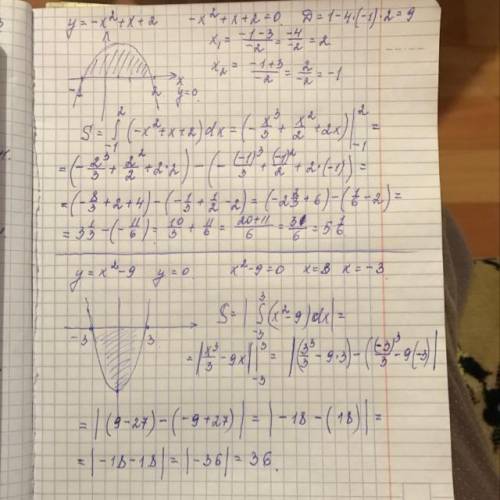 y=-x²+x+2   -x²+x+2=0   D=1-4·(-1)·2=9
x₁=(-1-3)/(-2)=(-4)/(-2)=2
x₂=(-1+3)/(-2)=2/(-2)=-1
-1   2   x
y=0
S=∫₋₁²(-x²+x+2)dx=(-x³/3+x²/2+2x)|₋₁²=
=(-2³/3+2²/2+2·2)-(-(-1)³/3+(-1)²/2+2·(-1))=
=(-8/3+2+4)-(-1/3+1/2-2)=(-2 2/3+6)-(1/6-2)=
=3 1/3-(-11/6)=10/3+11/6=(20+11)/6=31/6=5 1/6
y=x²-9   y=0   x²-9=0   x=3   x=-3
-3   3
S=|∫₋₃³(x²-9)dx|=
=|x³/3-9x||₋₃³=|(3³/3-9·3)-((-3)³/3-9(-3)|
=|(9-27)-(-9+27)|=|-18-(18)|=
=|-18-18|=|-36|=36.